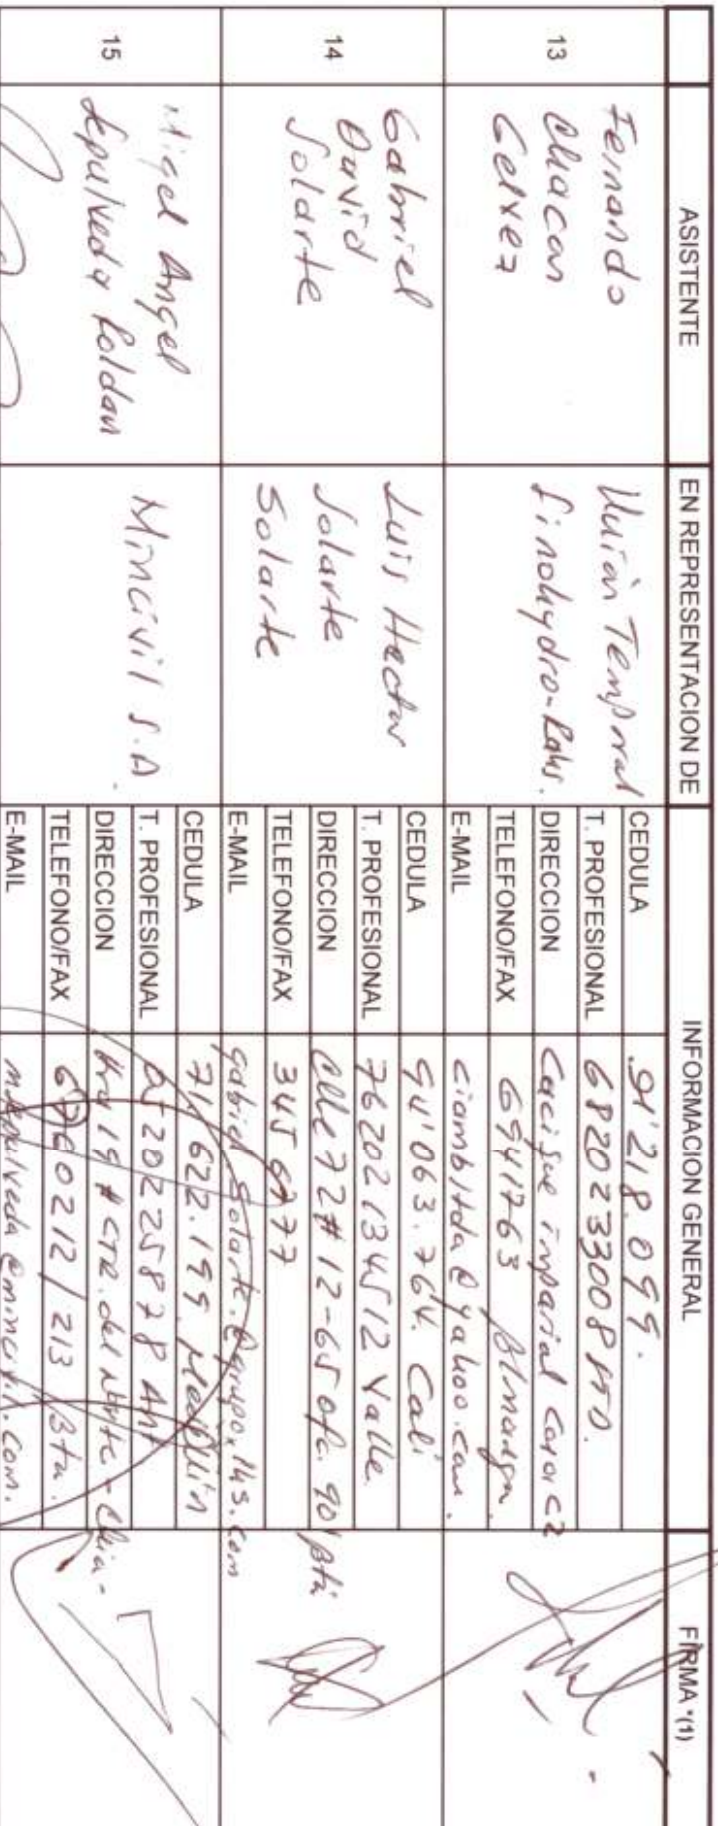 ASISTENTE EN REPRESENTACION DE INFORMACION GENERAL FIRMA *(1)
13
Fernando
Chacon
Gelvez
Unión Temporal
Finohydro-
CEDULA 91'218.099.
T. PROFESIONAL 6820233008 STD.
DIRECCION Cacique imparial casa C2
TELEFONO/FAX 6941763
E-MAIL ciambltda@yahoo.com.
14
Gabriel
David
Solarte
Luis Hector
Solarte
Solarte
CEDULA 94'063.764. Cali
T. PROFESIONAL 76202134512 Valle
DIRECCION Calle 72 # 12-65 ofc. 901 Btá
TELEFONO/FAX 345 6777
E-MAIL gabriel.solarte.@grupo.lhs.com
15
Migel Angel
Sepulveda Roldan
Mincivil S.A.
CEDULA 71.622.199. Medellín
T. PROFESIONAL 0520225878 Ant
DIRECCION Kra 19 # CTR. del Norte - Chia-
TELEFONO/FAX 6760212/213 Bta.
E-MAIL msepulveda@mincivil.com.